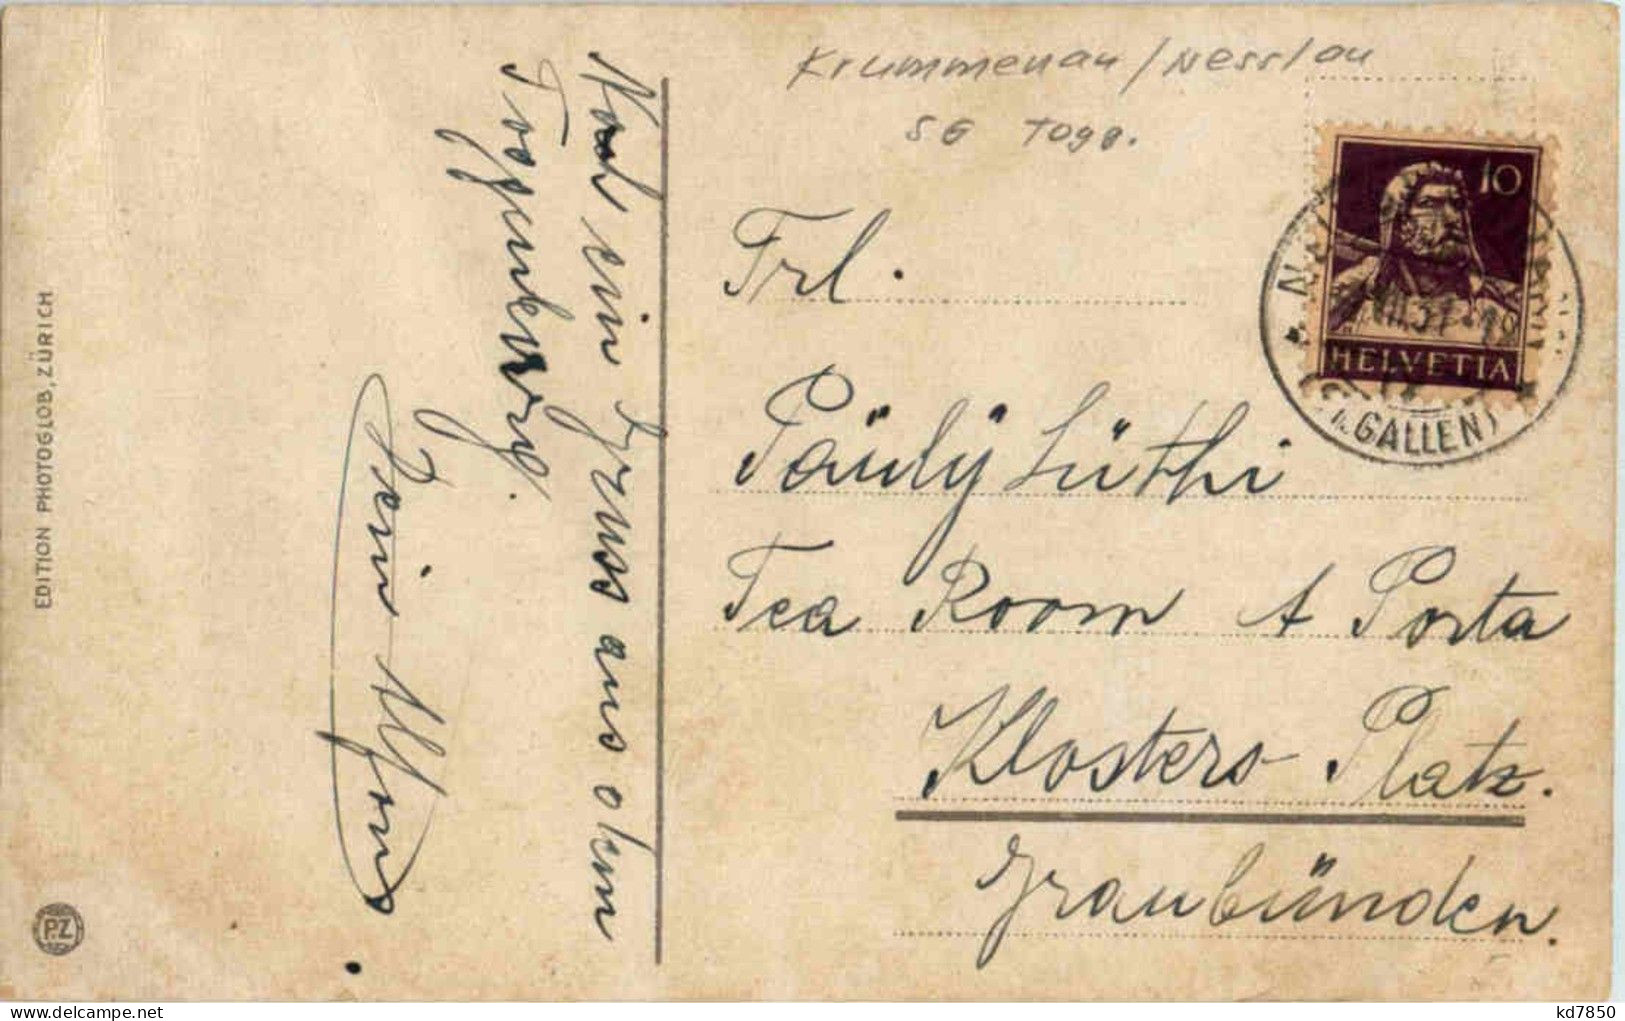 Krummenau / Nesslau
SG Togg.
10
HELVETIA
(ST. GALLEN)
Frl.
Päuly Lüthi
Tea Room A Porta
Klosters Platz.
Graubünden.
Noch ein Gruss aus dem
Toggenburg.
Dein Alfons
EDITION PHOTOGLOB, ZÜRICH
P.Z
kd7850